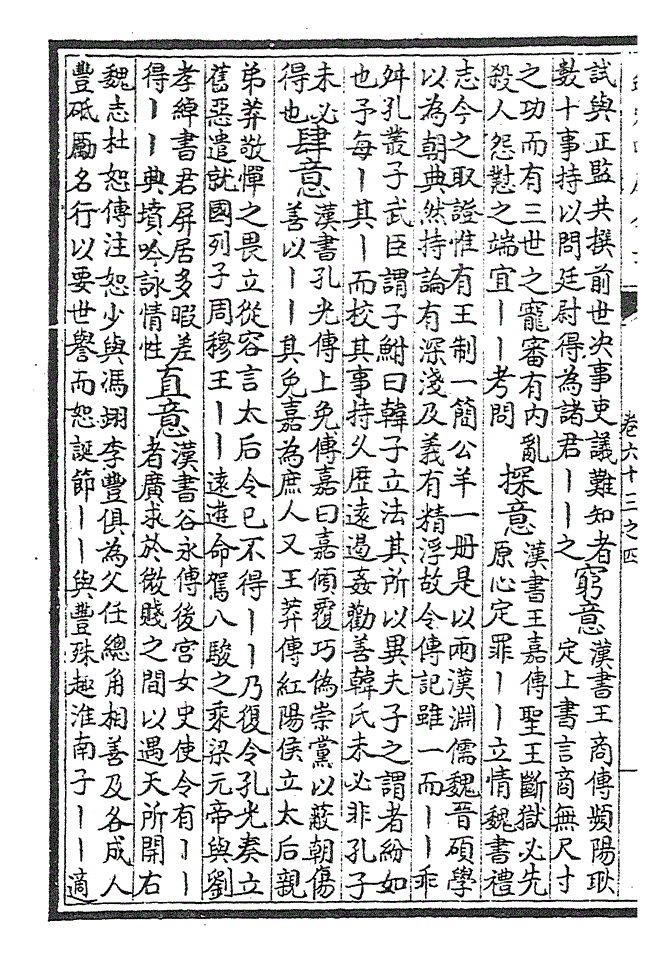 卷六十三之四
試與正監共撰前世決事吏議難知者
數十事持以問廷尉得為諸君丨丨之
窮意
漢書王商傳頻陽耿
定上書言商無尺寸
之功而有三世之寵審有內亂
殺人怨懟之端宜丨丨考問
探意
漢書王嘉傳聖王斷獄必先
原心定罪丨丨立情魏書禮
志今之取證惟有王制一簡公羊一册是以兩漢淵儒魏晉碩學
以為朝典然持論有深淺及義有精浮故令傳記雖一而丨丨乖
舛孔叢子武臣謂子鮒曰韓子立法其所以異夫子之謂者紛如
也予每丨其丨而校其事持久歷遠遏姦勸善韓氏未必非孔子
未必
得也
肆意
漢書孔光傳上免傅嘉曰嘉傾覆巧偽崇黨以蔽朝傷
善以丨丨其免嘉為庶人又王莽傳紅陽侯立太后親
弟莽敬憚之畏立從容言太后令已不得丨丨乃復令孔光奏立
舊惡遣就國列子周穆王丨丨遠遊命駕八駿之乘梁元帝與劉
孝綽書君屏居多暇差
得丨丨典墳吟詠情性
直意
漢書谷永傳後宮女史使令有丨丨
者廣求於微賤之間以遇天所開右
魏志杜恕傳注恕少與馮翊李豐俱為父任總角相善及各成人
豐砥勵名行以要世譽而恕誕節丨丨與豐殊趣淮南子丨丨適